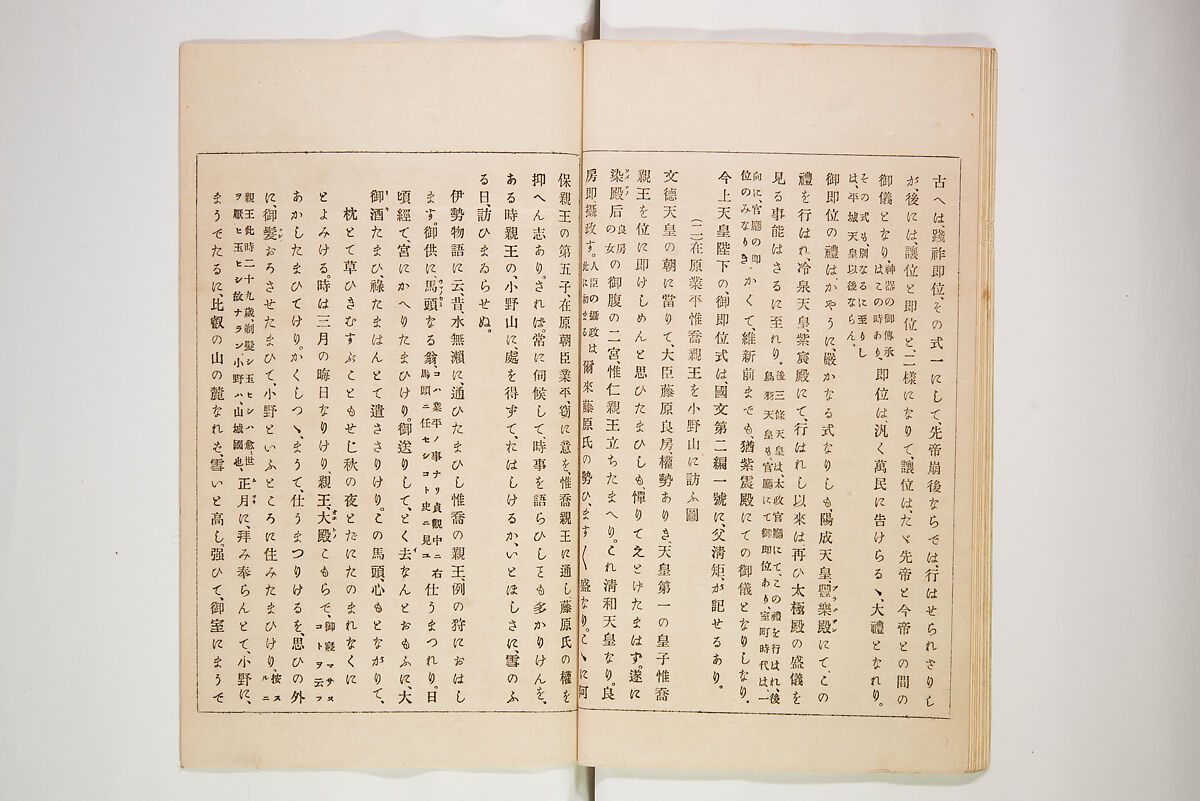 古へは、踐祚即位、その式一にして、先帝崩後ならでは、行はせられざりし
が、後には、讓位と即位と、二樣になりて、讓位は、たゞ先帝と今帝との間の
御儀となり、神器の御傳承はこの時あり、即位は、汎く萬民に告けらるゝ、大禮となれり。
その式も、別なるに至りしは、平城天皇以後ならん、
御即位の禮は、かやうに嚴かなる式なりしも、陽成天皇、豐樂殿にてこの
禮を行はれ、冷泉天皇、紫宸殿にて、行はれし以來は、再ひ太極殿の盛儀を
見る事能はさるに至れり。後三條天皇は、太政官廳にて、この禮を行はれ、後鳥羽天皇も、官廳にて御即位あり、室町時代は、一
向に、官廳の即位のみなりき、かくて、維新前までも、猶紫宸殿にての御儀となりしなり、
今上天皇陛下の、御即位式は、國文第二編一號に、父淸矩、が記せるあり。
(二)在原業平惟喬親王を小野山に訪ふ圖
文德天皇の朝に當りて、大臣藤原良房、權勢ありき、天皇第一の皇子惟喬
親王を位に即けしめんと思ひたまひしも憚りてえとけたまはず。遂に
染殿后良房の女の御腹の二宮、惟仁親王立ちたまへり。これ淸和天皇なり。良
房即攝政す。人臣の攝政は、此に初まる爾來藤原氏の勢ひ、ます〱盛なり。こゝに阿
保親王の第五子、在原朝臣業平、窃に意を、惟喬親王に通し藤原氏の權を
抑へん志あり。されば、常に伺候して時事を語らひしとも多かりけんを、
ある時親王の、小野山に處を得ずてたはしけるか、いとほしさに、雪のふ
る日、訪ひまゐらせぬ。
伊勢物語に云、昔、水無瀬に、通ひたまひし惟喬の親王、例の狩におはし
ます。御供に、馬頭なる翁、コハ業平ノ事ナリ貞觀中ニ右馬頭ニ任セシコト史ニ見ユ仕うまつれり。日
頃經て、宮にかへりたまひけり。御送りして、とく去なんとおもふに、大
御酒たまひ、祿たまはんとて遣さゝりけり。この馬頭、心もとながりて、
枕とて草ひきむすぶこともせじ秋の夜とたにたのまれなくに
とよみける。時は三月の晦日なりけり、親王、大殿こもらで、御寢マサスコトヲ云フ
あかしたまひてけり。かくしつゝ、まうて、仕うまつりけるを、思ひの外
に、御髪おろさせたまひて、小野といふところに住みたまひけり。按スルニ
親王此時二十九歳、剃髪シ玉ヒシハ愈、世ヲ厭ヒ玉ヒシ故ナラン小野ハ、山城國也、正月に、拜み奉らんとて、小野に、
まうでたるに、比叡の山の麓なれは、雪いと高し。强ひて、御室にまうで